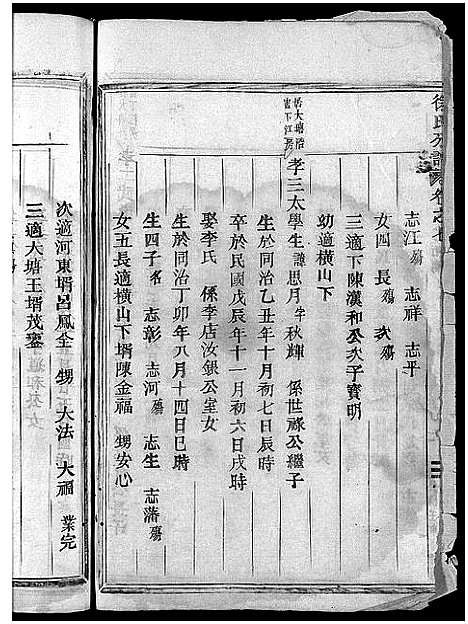 徐氏分譜 卷之七
志江殤 志祥 志平
女四 長殤 次殤
三適下陳漢和公次子寶明
幼適橫山下
居大塘沿
官下江房
孝三太學生諱思月字秋輝 係世祿公繼子
生於同治乙丑年十月初七日辰時
卒於民國戊辰年十一月初六日戌時
娶李氏 係李店汝銀公室女
生於同治丁卯年八月十四日巳時
生四子名 志彰 志河殤 志生 志藩殤
女五長適橫山下壻陳金福 甥安心
次適河東壻呂鳳全 甥 大法 大福 業完
三適大塘王壻茂鎏